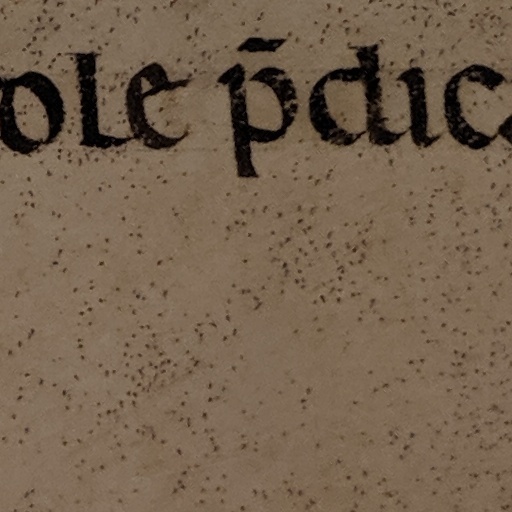 ole p̄dic